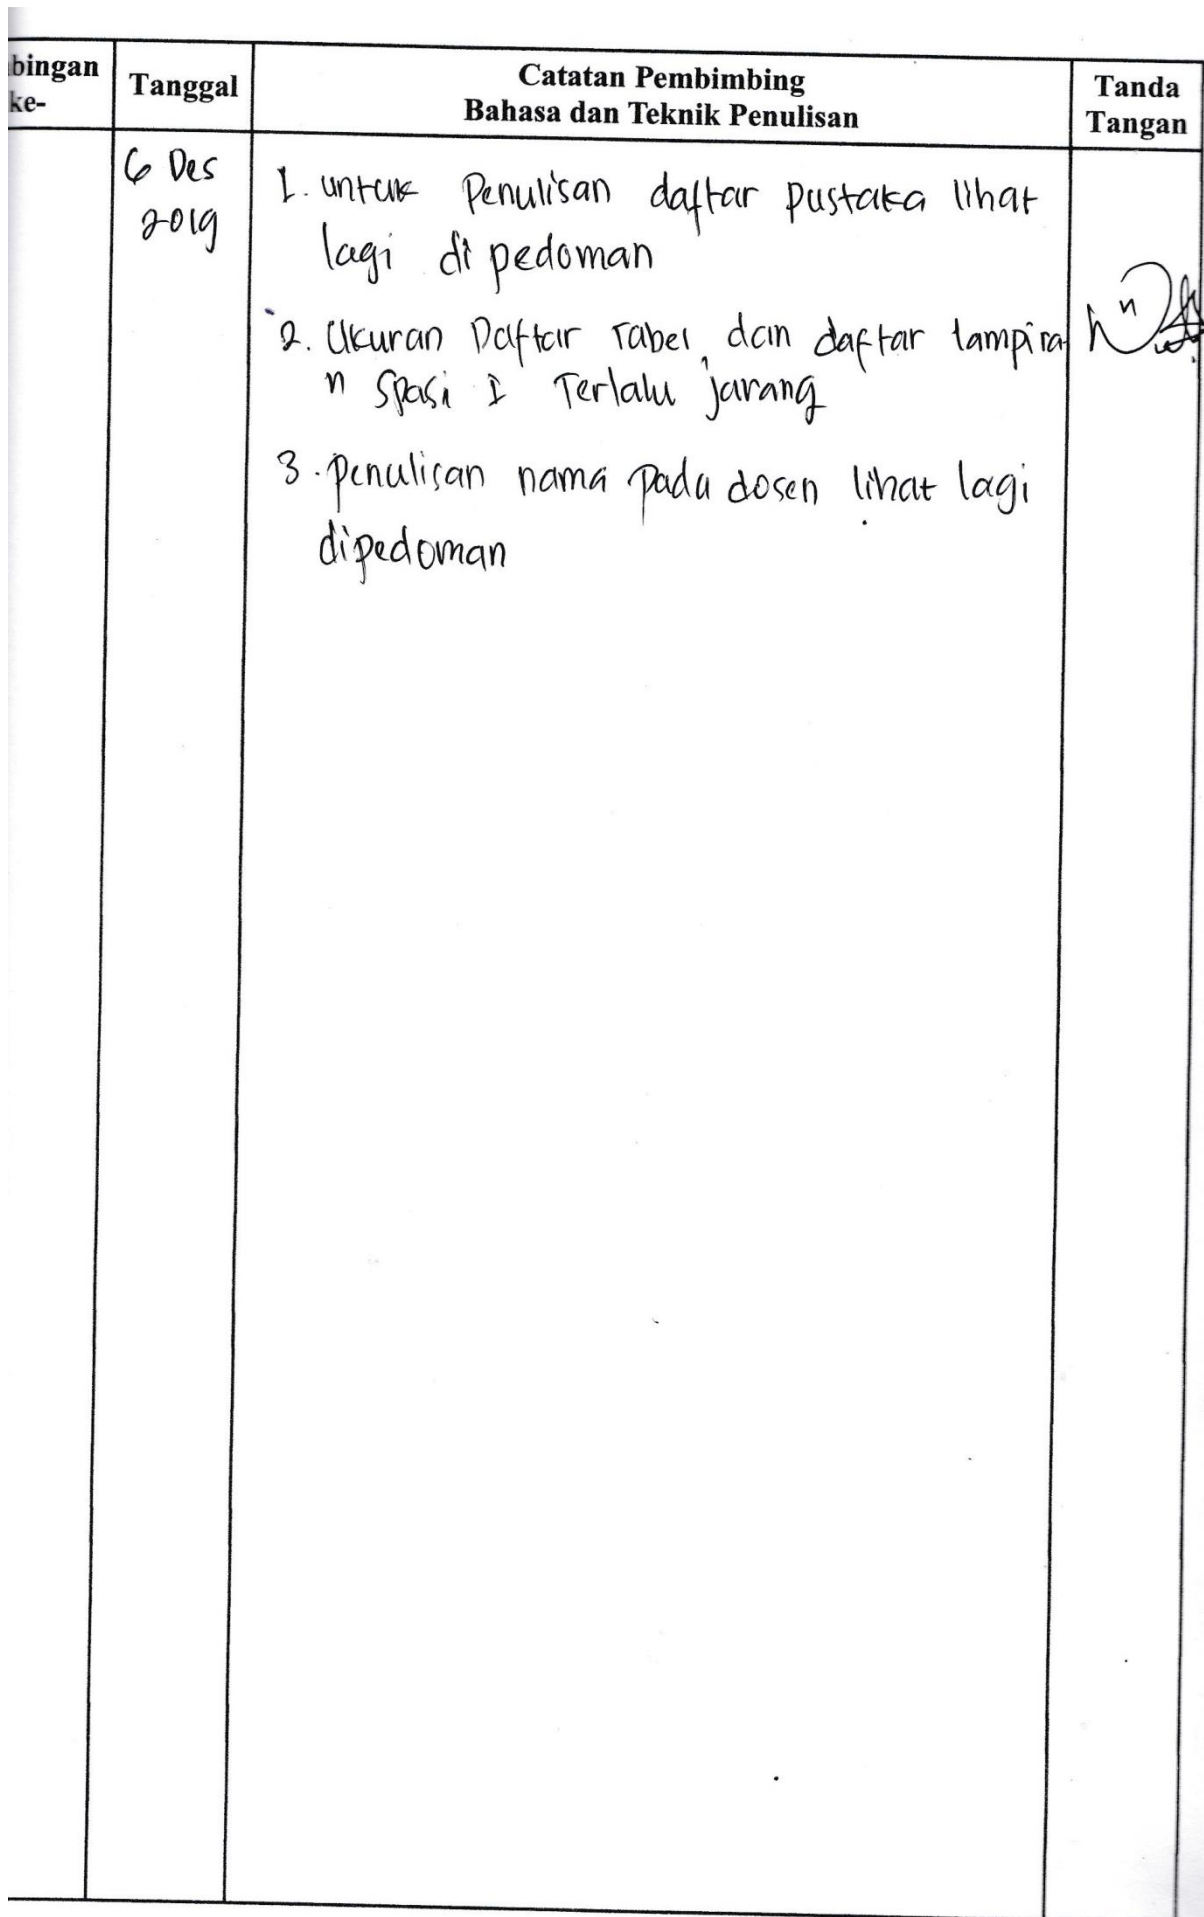 bingan
ke-
Tanggal
Catatan Pembimbing
Bahasa dan Teknik Penulisan
Tanda
Tangan
6 Des
2019
1. untuk Penulisan daftar pustaka lihat
lagi di pedoman
2. Ukuran Daftar Tabel, dan daftar lampira
n Spasi 1 Terlalu jarang
3. penulisan nama pada dosen lihat lagi
dipedoman